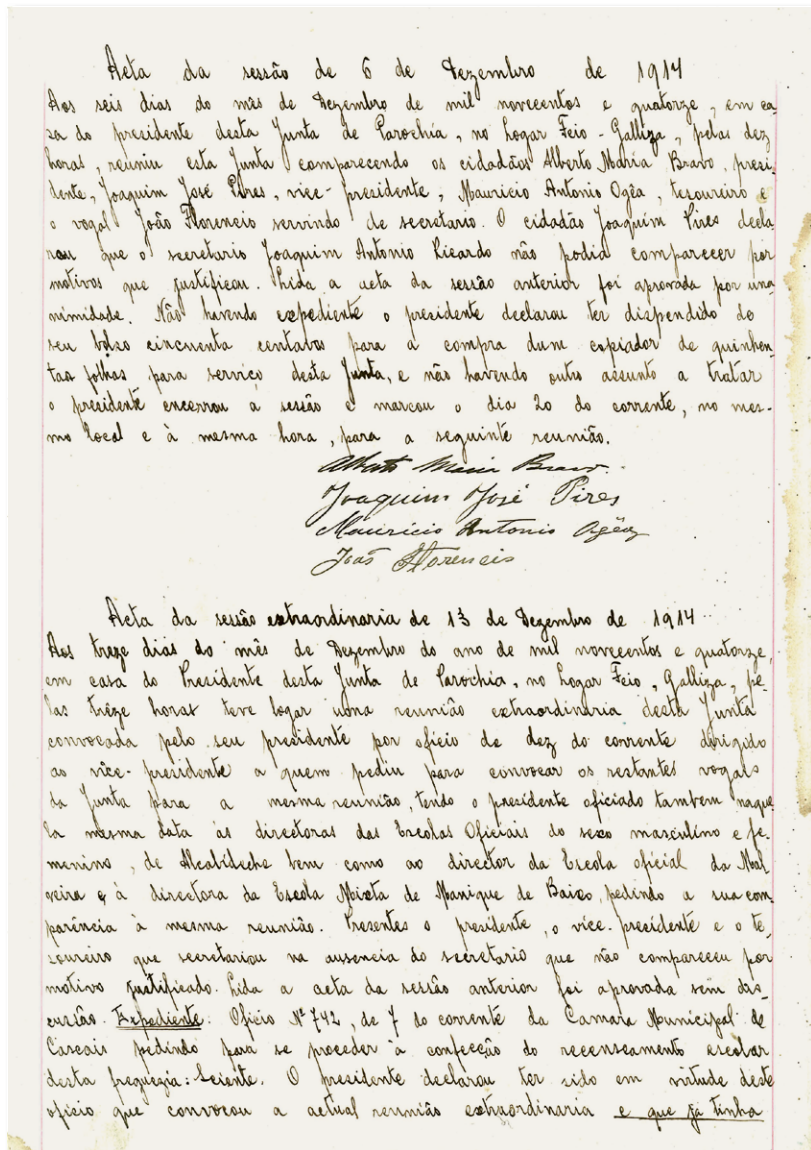 Acta da sessão de 6 de Dezembro de 1914
Aos seis dias do mês de Dezembro de mil novecentos e quatorze, em ca-
sa do presidente desta Junta de Parochia, no logar Feio - Galliza, pelas dez
horas, reuniu esta Junta comparecendo os cidadãos Alberto Maria Bravo, presi-
dente, Joaquim José Pires, vice-presidente, Mauricio Antonio Ogêa, tesoureiro e
o vogal João Florencio servindo de secretario. O cidadão Joaquim Pires decla-
rou que o secretario Joaquim Antonio Ricardo não podia comparecer por
motivos que justificou. Lida a acta da sessão anterior foi aprovada por una-
nimidade. Não havendo expediente o presidente declarou ter dispendido do
seu bolso cincuenta centavos para a compra dum copiador de quinhen-
tas folhas para serviço desta Junta, e não havendo outro assunto a tratar
o presidente encerrou a sessão e marcou o dia 20 do corrente, no mes-
mo local e à mesma hora, para a seguinte reunião.
Alberto Maria Bravo
Joaquim José Pires
Mauricio Antonio Ogêa
João Florencio
Acta da sessão extraordinaria de 13 de Dezembro de 1914
Aos treze dias do mês de Dezembro do ano de mil novecentos e quatorze,
em casa do Presidente desta Junta de Parochia, no logar Feio, Galliza, pe-
las trêze horas teve logar uma reunião extraordinaria desta Junta
convocada pelo seu presidente por oficio de dez do corrente dirigido
ao vice-presidente a quem pediu para convocar os restantes vogais
da Junta para a mesma reunião, tendo o presidente oficiado tambem naque-
la mesma data às directoras das Escolas Oficiais do sexo masculino e fe-
menino, de Alcabideche bem como ao director da Escola oficial da Mal
veira e à directora da Escola Mixta de Manique de Baixo, pedindo a sua com-
parência à mesma reunião. Presentes o presidente, o vice-presidente e o te-
soureiro que secretariou na ausencia do secretario que não compareceu por
motivo justificado. Lida a acta da sessão anterior foi aprovada sem dis-
cursão. Expediente: Oficio Nº 742, de 7 do corrente da Camara Municipal de
Cascais pedindo para se proceder à confecção do recenseamento escolar
desta freguezia: Sciente. O presidente declarou ter sido em virtude deste
oficio que convocou a actual reunião extraordinaria e que já tinha